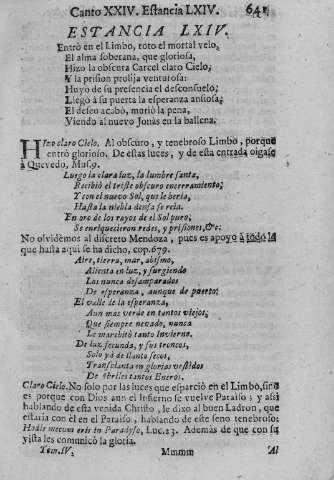 Canto XXIV. Estancia LXIV. 641
ESTANCIA LXIV.
Entrò en el Limbo, roto el mortal velo,
El alma soberana, que gloriosa,
Hizo la obscura Carcel claro Cielo;
Y la prision prolija venturosa:
Huyò de su presencia el desconsuelo;
Llegò à su puerta la esperança ansiosa;
El deseo acabò, muriò la pena,
Viendo al nuevo Jonàs en la ballena.
Hizo claro Cielo. Al obscuro, y tenebroso Limbo, porque
entrò glorioso. De estas luces, y de esta entrada oigase
à Quevedo, Mus.9.
Luego la clara luz, la lumbre santa,
Recibiò el triste obscuro encerramiento;
Y con el nuevo Sol, que le heria,
Hasta la niebla densa se reìa.
En oro de los rayos de el Sol puro,
Se enriquecieron redes, y prisiones, &c.
No olvidèmos al discreto Mendoza, pues es apoyo à todo lo
que hasta aqui se ha dicho, cop.679.
Aire, tierra, mar, abismo,
Alienta en luz, y surgiendo
Las nunca desamparados
De esperança, aunque de puerto;
El valle de la esperança,
Aun mas verde en tantos viejos,
Que siempre nevado, nunca
Le marchitò tanto Invierno.
De luz fecunda, y sus troncos,
Solo yà de llanto secos,
Transplanta en glorias vestidos
De Abriles tantos Eneros.
Claro Cielo. No solo por las luces que esparciò en el Limbo, sino
es porque con Dios aun el Infierno se vuelve Paraiso; y assi
hablando de esta venida Christo, le dixo al buen Ladron, que
estaria con èl en el Paraiso, hablando de este seno tenebroso:
Hodie mecum eris in Paradyso, Luc.23. Ademàs de que con su
vista les comunicò la gloria.
Tom.IV. Mmmm Al